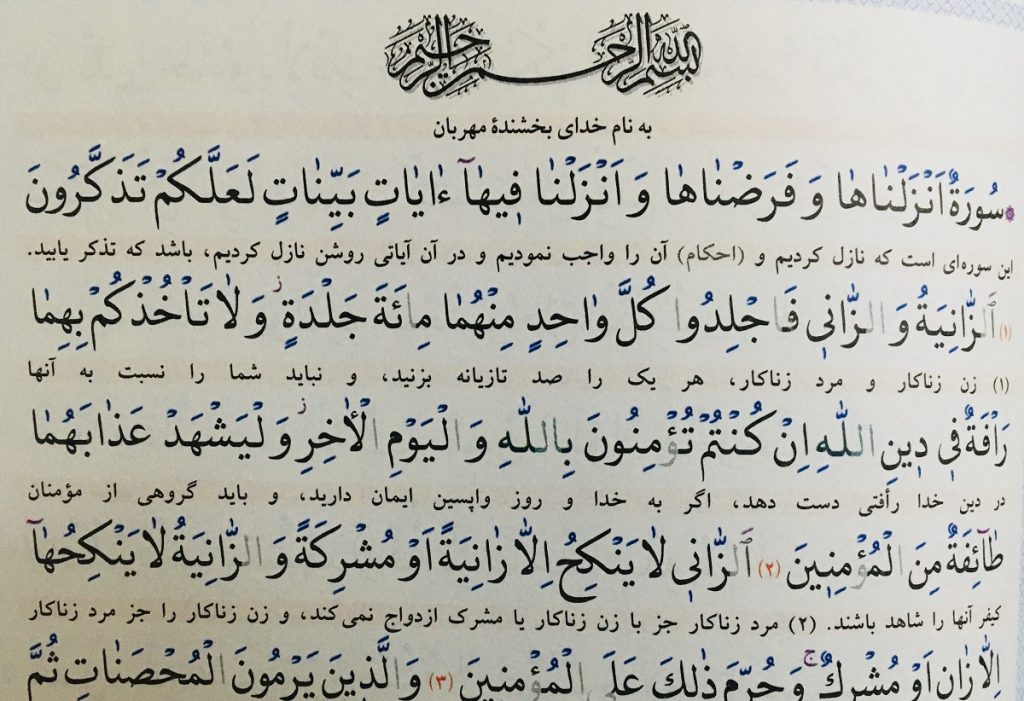 بِسْمِ اللهِ الرَّحْمٰنِ الرَّحیمِ
به نام خدای بخشندهٔ مهربان
سُورَةٌ اَنْزَلْناها وَ فَرَضْناها وَ اَنْزَلْنا فیهآ ءٰایاتٍ بَیِّناتٍ لَعَلَّکُمْ تَذَکَّرُونَ
این سوره‌ای است که نازل کردیم و (احکام) آن را واجب نمودیم و در آن آیاتی روشن نازل کردیم، باشد که تذکر یابید.
(۱) اَلزّانِیَةُ وَ الزّانی فَاجْلِدُوا کُلَّ واحِدٍ مِنْهُما مِائَةَ جَلْدَةٍ ز وَ لا تَاْخُذْکُمْ بِهِما
(۱) زن زناکار و مرد زناکار، هر یک را صد تازیانه بزنید، و نباید شما را نسبت به آنها
رَاْفَةٌ فی دینِ اللهِ اِنْ کُنْتُمْ تُؤْمِنُونَ بِاللهِ وَ الْیَوْمِ الْاٰخِرِ ز وَ لْیَشْهَدْ عَذابَهُما
در دین خدا رأفتی دست دهد، اگر به خدا و روز واپسین ایمان دارید، و باید گروهی از مؤمنان
طآئِفَةٌ مِنَ الْمُؤْمِنینَ (۲) اَلزّانی لا یَنْکِحُ اِلّا زانِیَةً اَوْ مُشْرِکَةً وَ الزّانِیَةُ لا یَنْکِحُهآ
کیفر آنها را شاهد باشند. (۲) مرد زناکار جز با زن زناکار یا مشرک ازدواج نمی‌کند، و زن زناکار را جز مرد زناکار
اِلّا زانٍ اَوْ مُشْرِکٌ ج وَ حُرِّمَ ذٰلِکَ عَلَی الْمُؤْمِنینَ (۳) وَ الَّذینَ یَرْمُونَ الْمُحْصَناتِ ثُمَّ